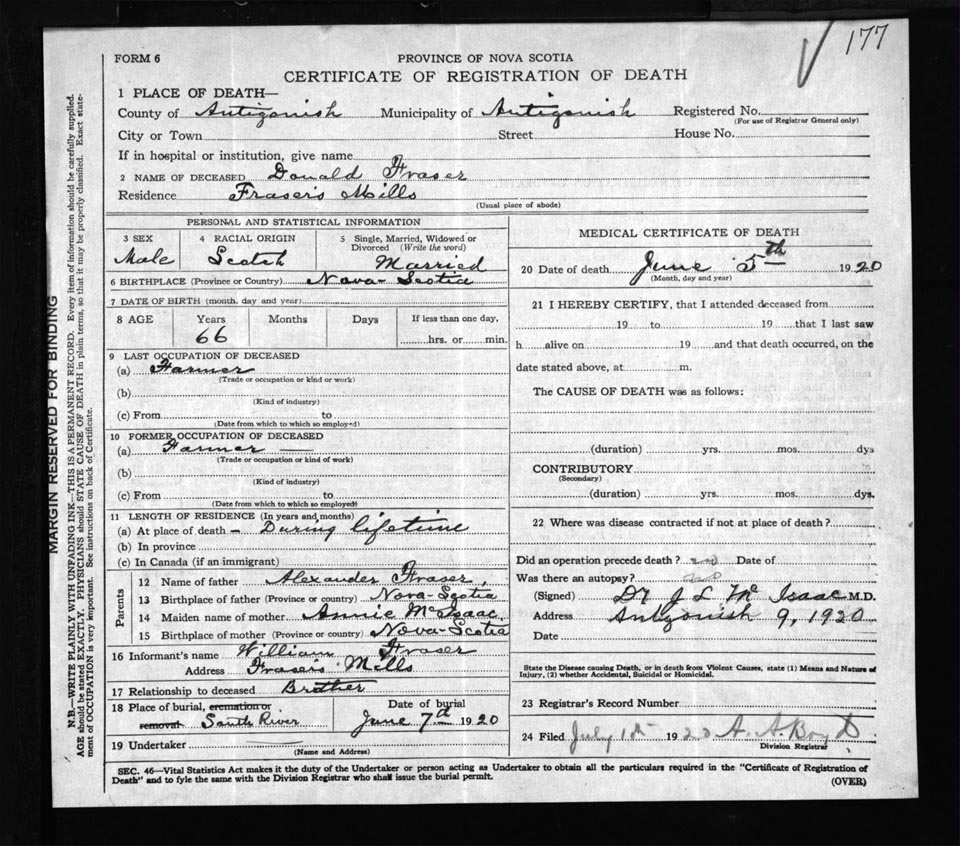 177
FORM 6
PROVINCE OF NOVA SCOTIA
CERTIFICATE OF REGISTRATION OF DEATH
1 PLACE OF DEATH—
County of Antigonish Municipality of Antigonish Registered No.
(For use of Registrar General only)
City or Town Street House No.
If in hospital or institution, give name
2 NAME OF DECEASED Donald Fraser
Residence Fraser's Mills
(Usual place of abode)
PERSONAL AND STATISTICAL INFORMATION
3 SEX 4 RACIAL ORIGIN 5 Single, Married, Widowed or
Divorced (Write the word)
Male Scotch Married
6 BIRTHPLACE (Province or Country) Nova-Scotia
7 DATE OF BIRTH (month, day and year)
8 AGE Years Months Days If less than one day,
66 hrs. or min.
9 LAST OCCUPATION OF DECEASED
(a) Farmer
(Trade or occupation or kind or work)
(b)
(Kind of industry)
(c) From to
(Date from which to which so employed)
10 FORMER OCCUPATION OF DECEASED
(a) Farmer —
(Trade or occupation or kind of work)
(b)
(Kind of industry)
(c) From to
(Date from which to which so employed)
11 LENGTH OF RESIDENCE (In years and months)
(a) At place of death – During lifetime
(b) In province
(c) In Canada (if an immigrant)
Parents
12 Name of father Alexander Fraser,
13 Birthplace of father (Province or country) Nova-Scotia
14 Maiden name of mother Annie McIsaac
15 Birthplace of mother (Province or country) Nova-Scotia
16 Informant's name William Fraser
Address Frasers Mills
17 Relationship to deceased Brother
18 Place of burial, cremation or Date of burial
removal South River June 7th 1920
19 Undertaker
(Name and Address)
MEDICAL CERTIFICATE OF DEATH
20 Date of death June 5th 1920
(Month, day and year)
21 I HEREBY CERTIFY, that I attended deceased from
19 to 19 that I last saw
h alive on 19 and that death occurred, on the
date stated above, at m.
The CAUSE OF DEATH was as follows:
(duration) yrs. mos. dys
CONTRIBUTORY
(Secondary)
(duration) yrs. mos. dys.
22 Where was disease contracted if not at place of death?
Did an operation precede death? no Date of
Was there an autopsy? no
(Signed) Dr J L Mc Isaac M.D.
Address Antigonish 9, 1920
Date
State the Disease causing Death, or in death from Violent Causes, state (1) Means and Nature of
Injury, (2) whether Accidental, Suicidal or Homicidal.
23 Registrar's Record Number
24 Filed July 1920 A. A. Boyd
Division Registrar
SEC. 46—Vital Statistics Act makes it the duty of the Undertaker or person acting as Undertaker to obtain all the particulars required in the "Certificate of Registration of
Death" and to fyle the same with the Division Registrar who shall issue the burial permit.
(OVER)
MARGIN RESERVED FOR BINDING
N.B.—WRITE PLAINLY WITH UNFADING INK—THIS IS A PERMANENT RECORD. Every item of information should be carefully supplied.
AGE should be stated EXACTLY. PHYSICIANS should STATE CAUSE OF DEATH in plain terms, so that it may be properly classified. Exact state-
ment of OCCUPATION is very important. See instructions on back of Certificate.